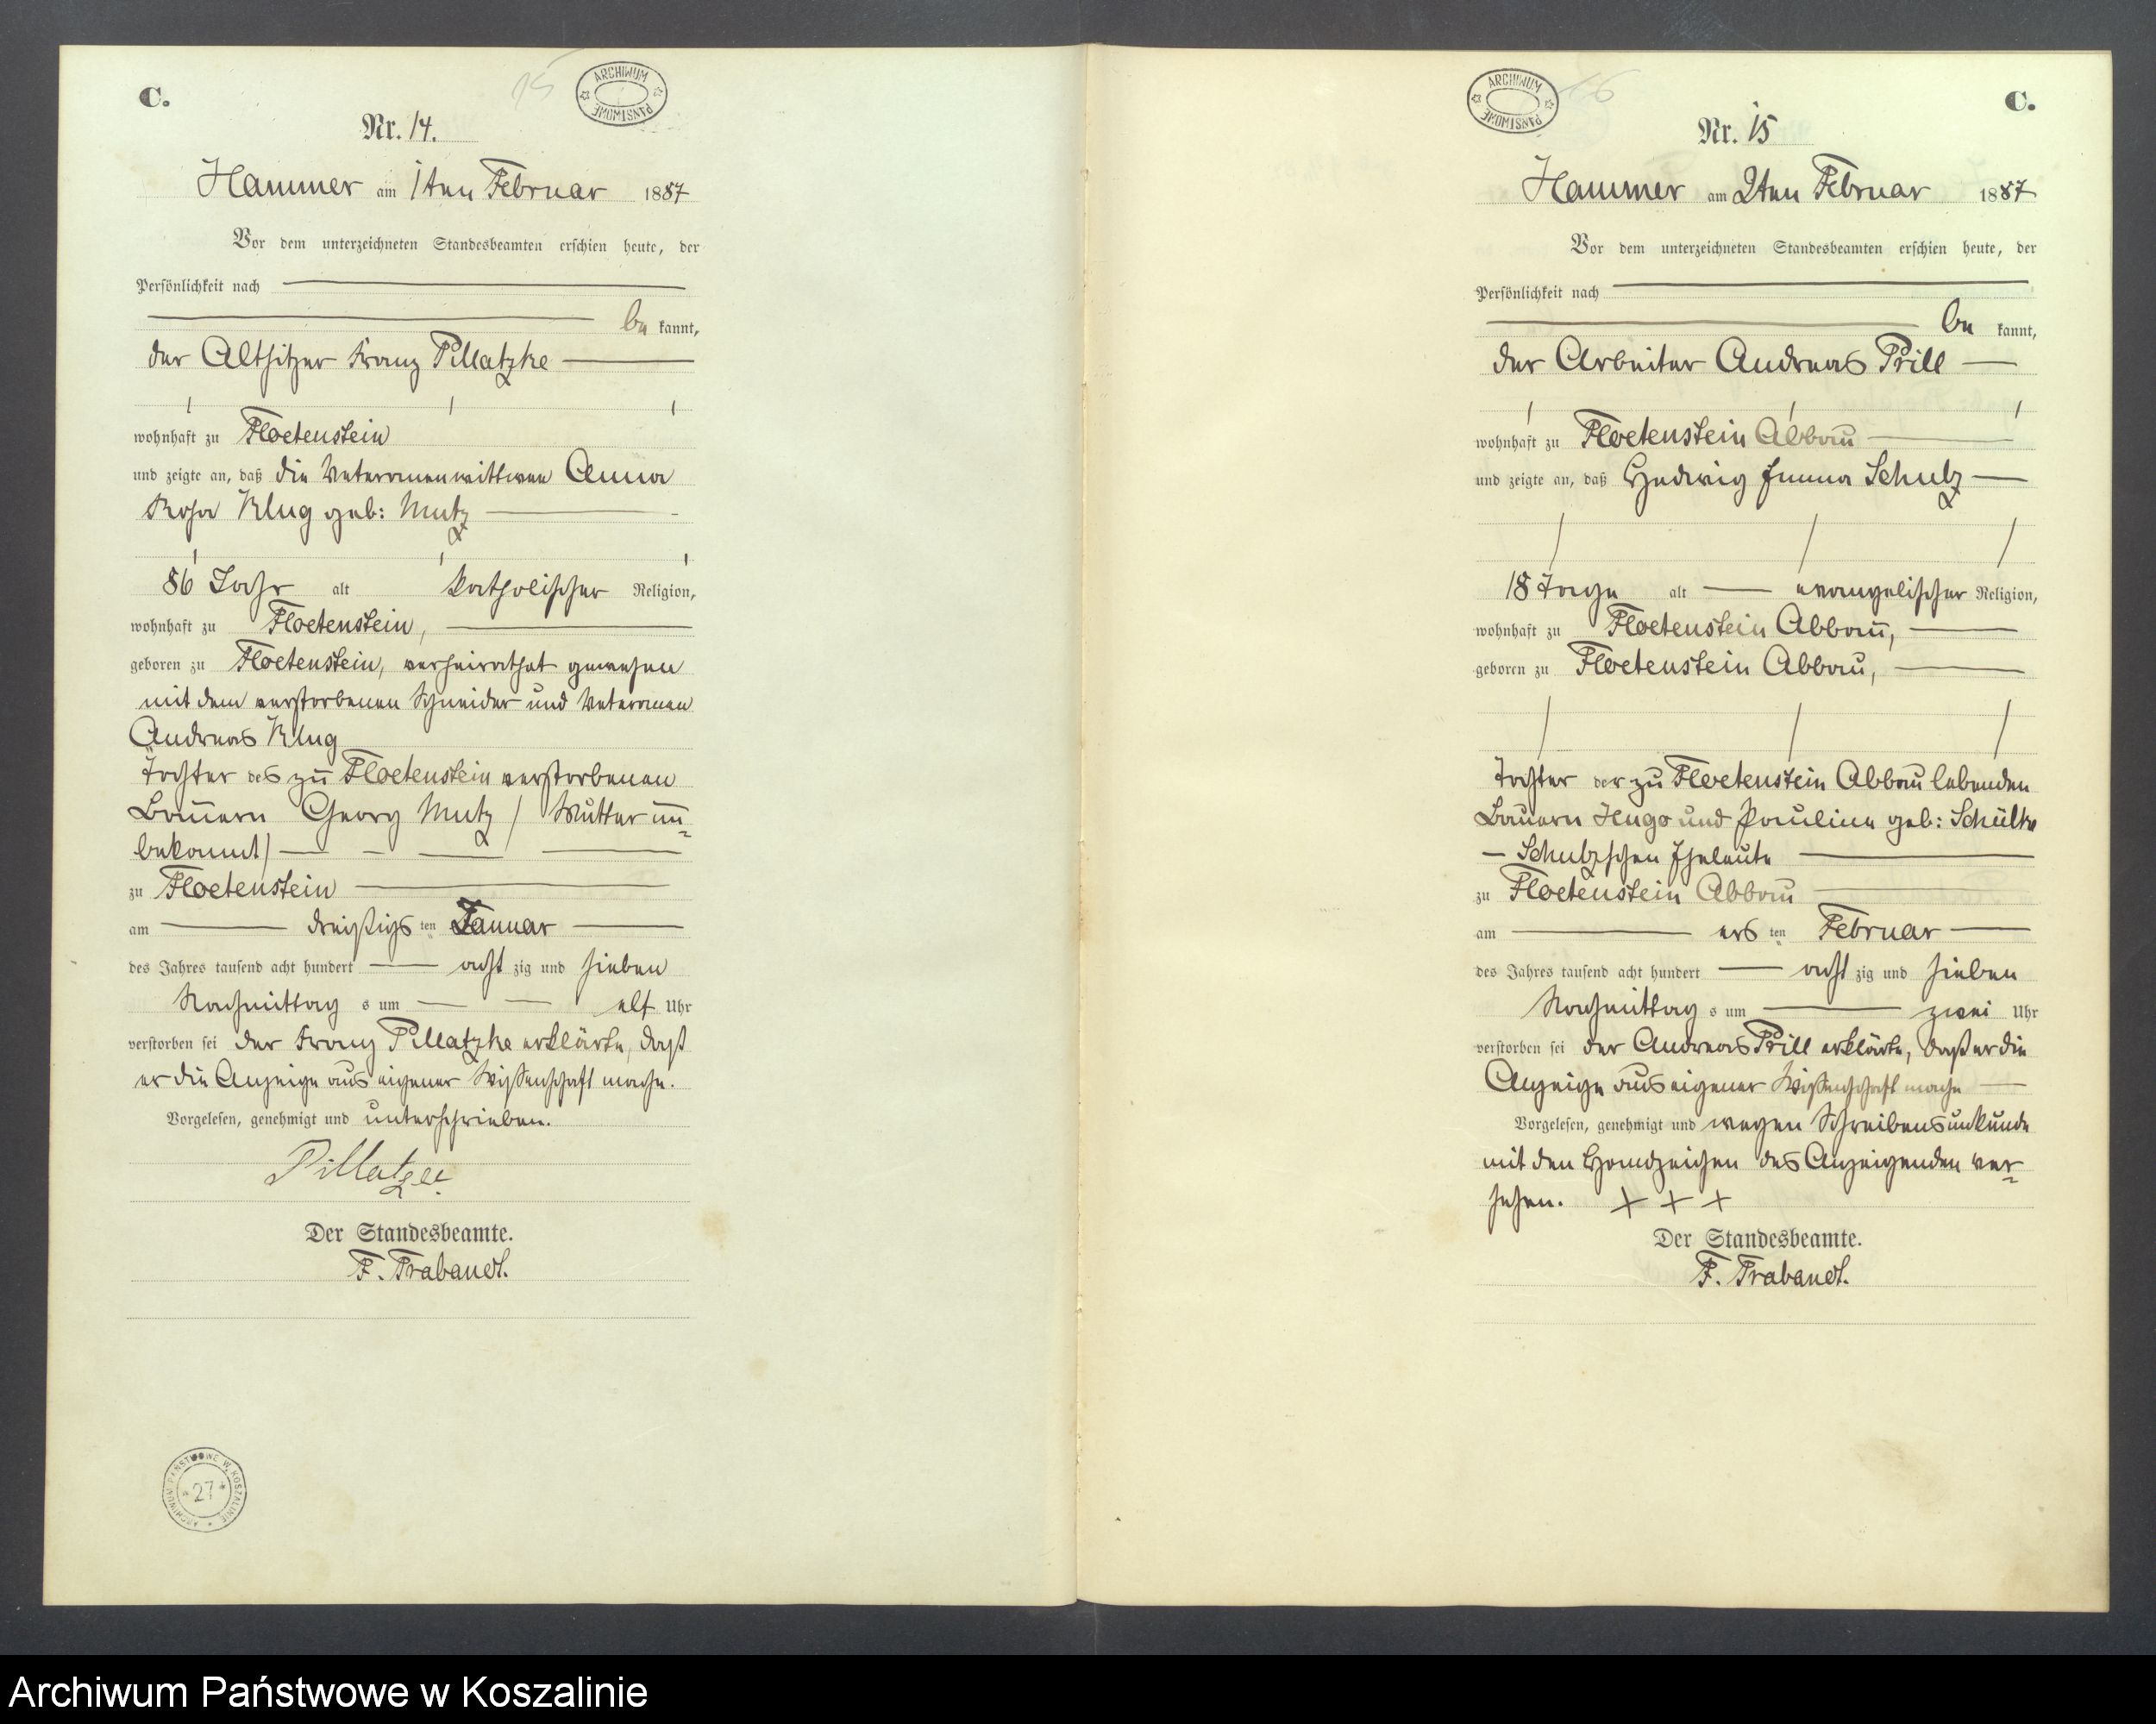 C.
ARCHIWUM PAŃSTWOWE
Nr. 14.
Hammer am 1ten Februar 1887
Vor dem unterzeichneten Standesbeamten erschien heute, der
Persönlichkeit nach
be kannt,
der Altsitzer Franz Pillatzke
wohnhaft zu Floetenstein
und zeigte an, daß die Veteranenwittwee Anna
Rosa Klug geb: Mutz
86 Jahr alt katholischer Religion,
wohnhaft zu Floetenstein,
geboren zu Floetenstein, verheirathet gewesen
mit dem verstorbenen Schneider und Veteranen
Andreas Klug
Tochter des zu Floetenstein verstorbenen
Bauern Georg Mutz / Mutter un=
bekannt/
zu Floetenstein
am dreißigs ten Januar
des Jahres tausend acht hundert acht zig und sieben
Nachmittag s um elf Uhr
verstorben sei der Franz Pillatzke erklärte, daß
er die Anzeige aus eigener Wissenschaft mache.
Vorgelesen, genehmigt und unterschrieben.
Der Standesbeamte.
F. Trabandt.
ARCHIWUM PAŃSTWOWE W KOSZALINIE
27
ARCHIWUM PAŃSTWOWE
C.
Nr. 15
Hammer am 2ten Februar 1887
Vor dem unterzeichneten Standesbeamten erschien heute, der
Persönlichkeit nach
be kannt,
der Arbeiter Andreas Prill
wohnhaft zu Floetenstein Abbau
und zeigte an, daß Hedwig Emma Schulz
18 Tage alt evangelischer Religion,
wohnhaft zu Floetenstein Abbau,
geboren zu Floetenstein Abbau,
Tochter der zu Floetenstein Abbau lebenden
Bauern Hugo und Pauline geb: Schülke
Schulzschen Eheleute
zu Floetenstein Abbau
am ers ten Februar
des Jahres tausend acht hundert acht zig und sieben
Nachmittag s um zwei Uhr
verstorben sei der Andreas Prill erklärte, daß er die
Anzeige aus eigener Wissenschaft mache
Vorgelesen, genehmigt und wegen Schreibensunkunde
mit den Handzeichen des Anzeigenden ver=
sehen. + + +
Der Standesbeamte.
F. Trabandt.
Archiwum Państwowe w Koszalinie